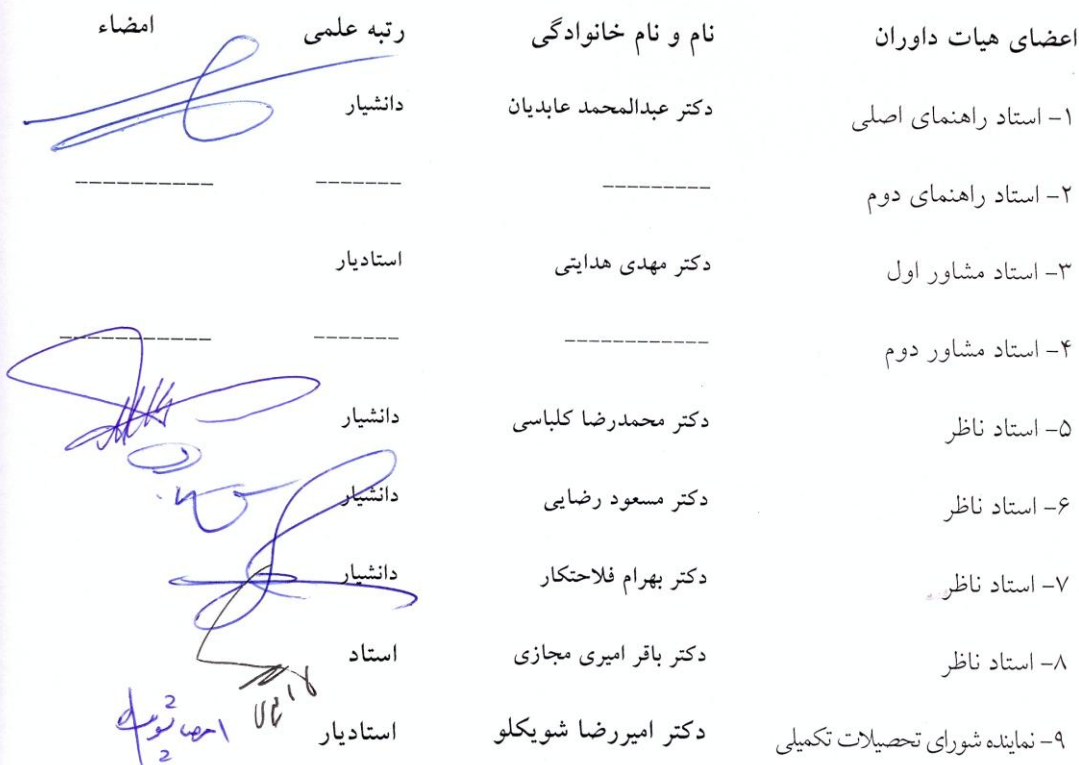 اعضای هیات داوران نام و نام خانوادگی رتبه علمی امضاء
۱- استاد راهنمای اصلی دکتر عبدالمحمد عابدیان دانشیار
۲- استاد راهنمای دوم ---------- -------- -------------
۳- استاد مشاور اول دکتر مهدی هدایتی استادیار
۴- استاد مشاور دوم ------------- -------- --------------
۵- استاد ناظر دکتر محمدرضا کلباسی دانشیار
۶- استاد ناظر دکتر مسعود رضایی دانشیار
۷- استاد ناظر دکتر بهرام فلاحتکار دانشیار
۸- استاد ناظر دکتر باقر امیری مجازی استاد
۹- نماینده شورای تحصیلات تکمیلی دکتر امیررضا شویکلو استادیار